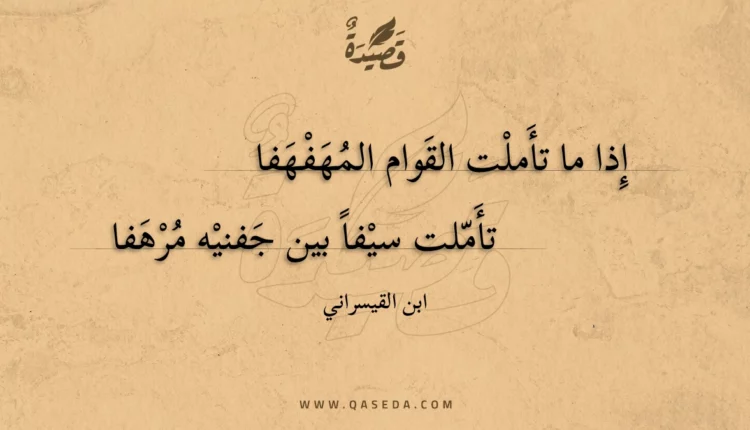 قَصِيْدَةٌ
إِذا ما تأَملْت القَوام المُهَفْهَفا
تأَمّلت سيْفاً بين جَفنيْه مُرْهَفا
ابن القيسراني
WWW.QASEDA.COM